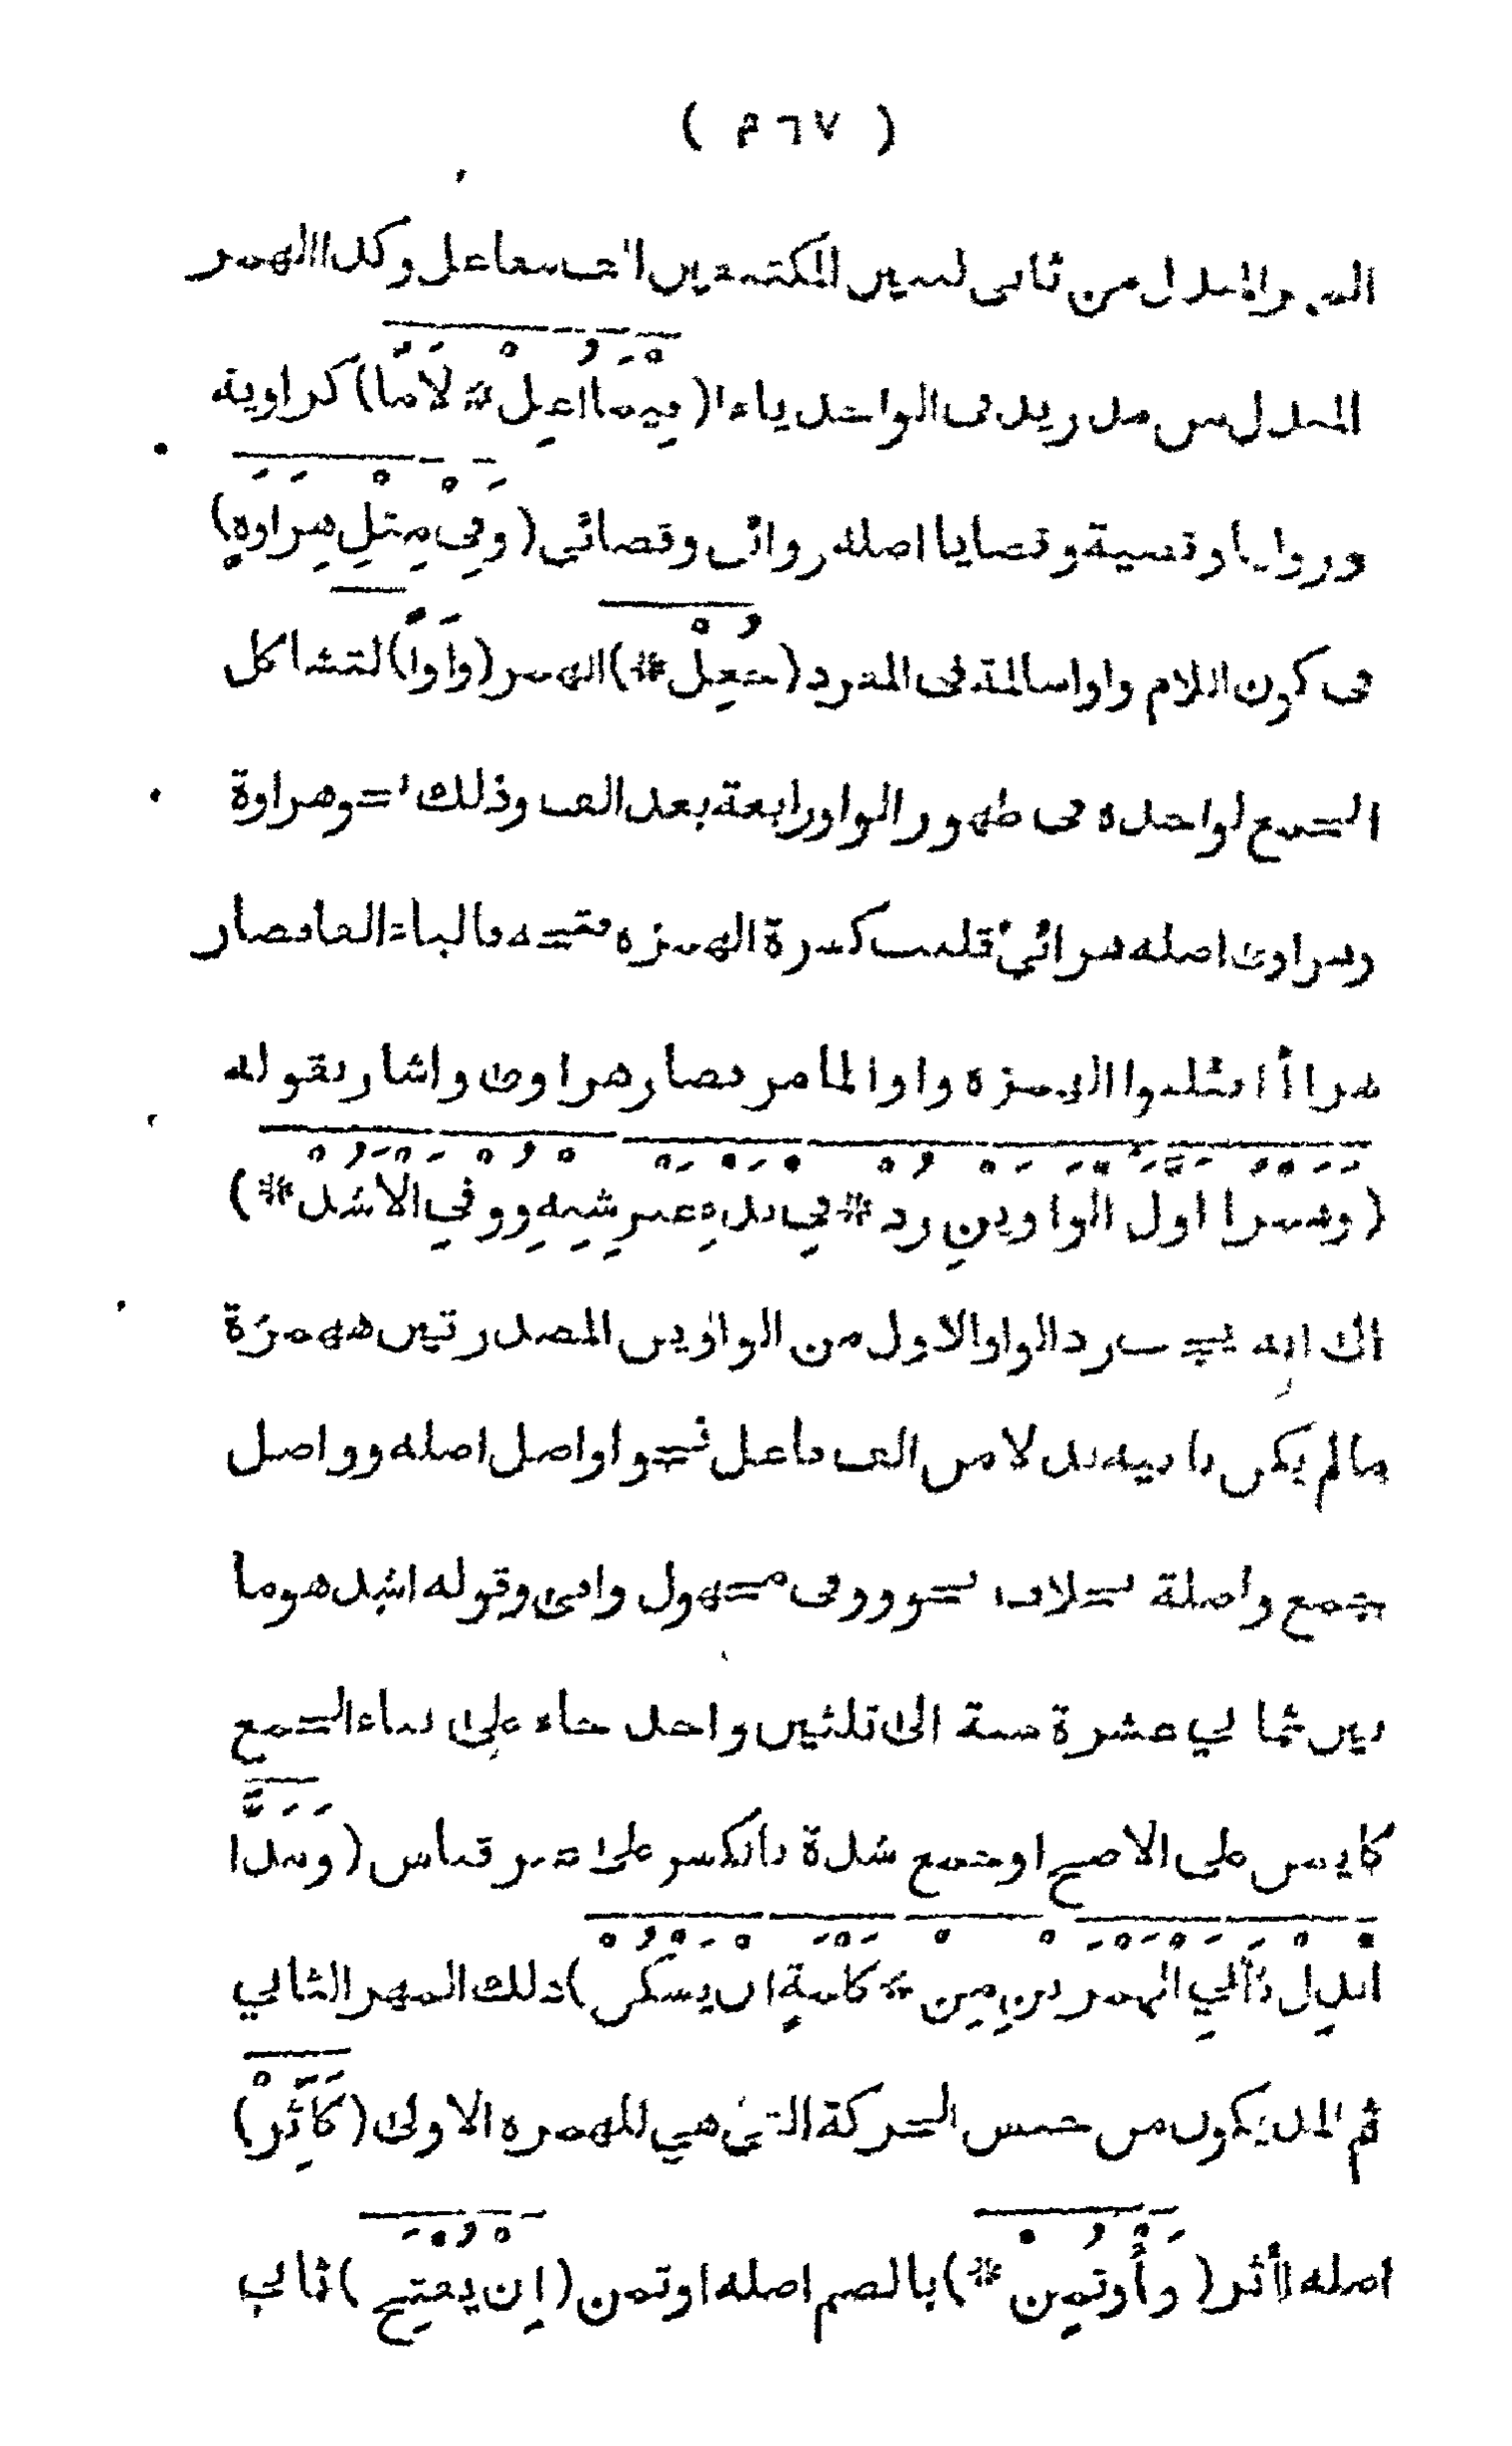 ( ٤٦٧ )
المد والمبدل من ثاني لينين المكتنفين الف مفاعل وكذا الهمز
المبدل من مد زيد في الواحد ياءا (فِيْمَا اُعِلْ * لَامًا) كراوية
وروايا وقضية وقضايا اصله روائى وقضائي (وَفِيْ مِثْلِ هِرَاوَةٍ)
في كون اللام واوا سالمة في المفرد (جُعِلْ *) الهمز (وَاوًا) لتشاكل
الجمع لواحده في ظهور الواو رابعة بعد الف وذلك نحو هراوة
وهراوى اصله هرائي قلبت كسرة الهمزه فتحه فالياء الفا فصار
هراأا فقلبوا الهمزه واوا لما مر فصار هراوى واشار بقوله
(وَهَمْزًا اَوَّلَ الْوَاوَيْنِ رُدْ * فِيْ بَدْءِ غَيْرِ شِبْهِ وُوْفِيَ الْاَشُدْ *)
الى انه يجب رد الواو الاول من الواوين المصدرتين همزة
ما لم يكن ثانيه بدلا من الف فاعل نحو اواصل اصله وواصل
جمع واصلة بخلاف نحو ووفى مجهول وافى وقوله اشد هو ما
بين ثماني عشرة سنة الى ثلثين واحد جاء على بناء الجمع
كايس على الاصح او جمع شدة بالكسر على غير قياس (وَمَدًّا
اَبْدِلْ ثَانِيَ الْهَمْزَيْنِ مِنْ * كَلْمَةٍ اَنْ يَسْكُنْ) ذلك الهمز الثاني
ثم المد يكون من جنس الحركة التي هي للهمزه الاولى (كَآثِرْ)
اصله اأثر (وَأُوتُمِنْ *) بالضم اصله اوتمن (اِنْ يُفْتَحِ) ثاني